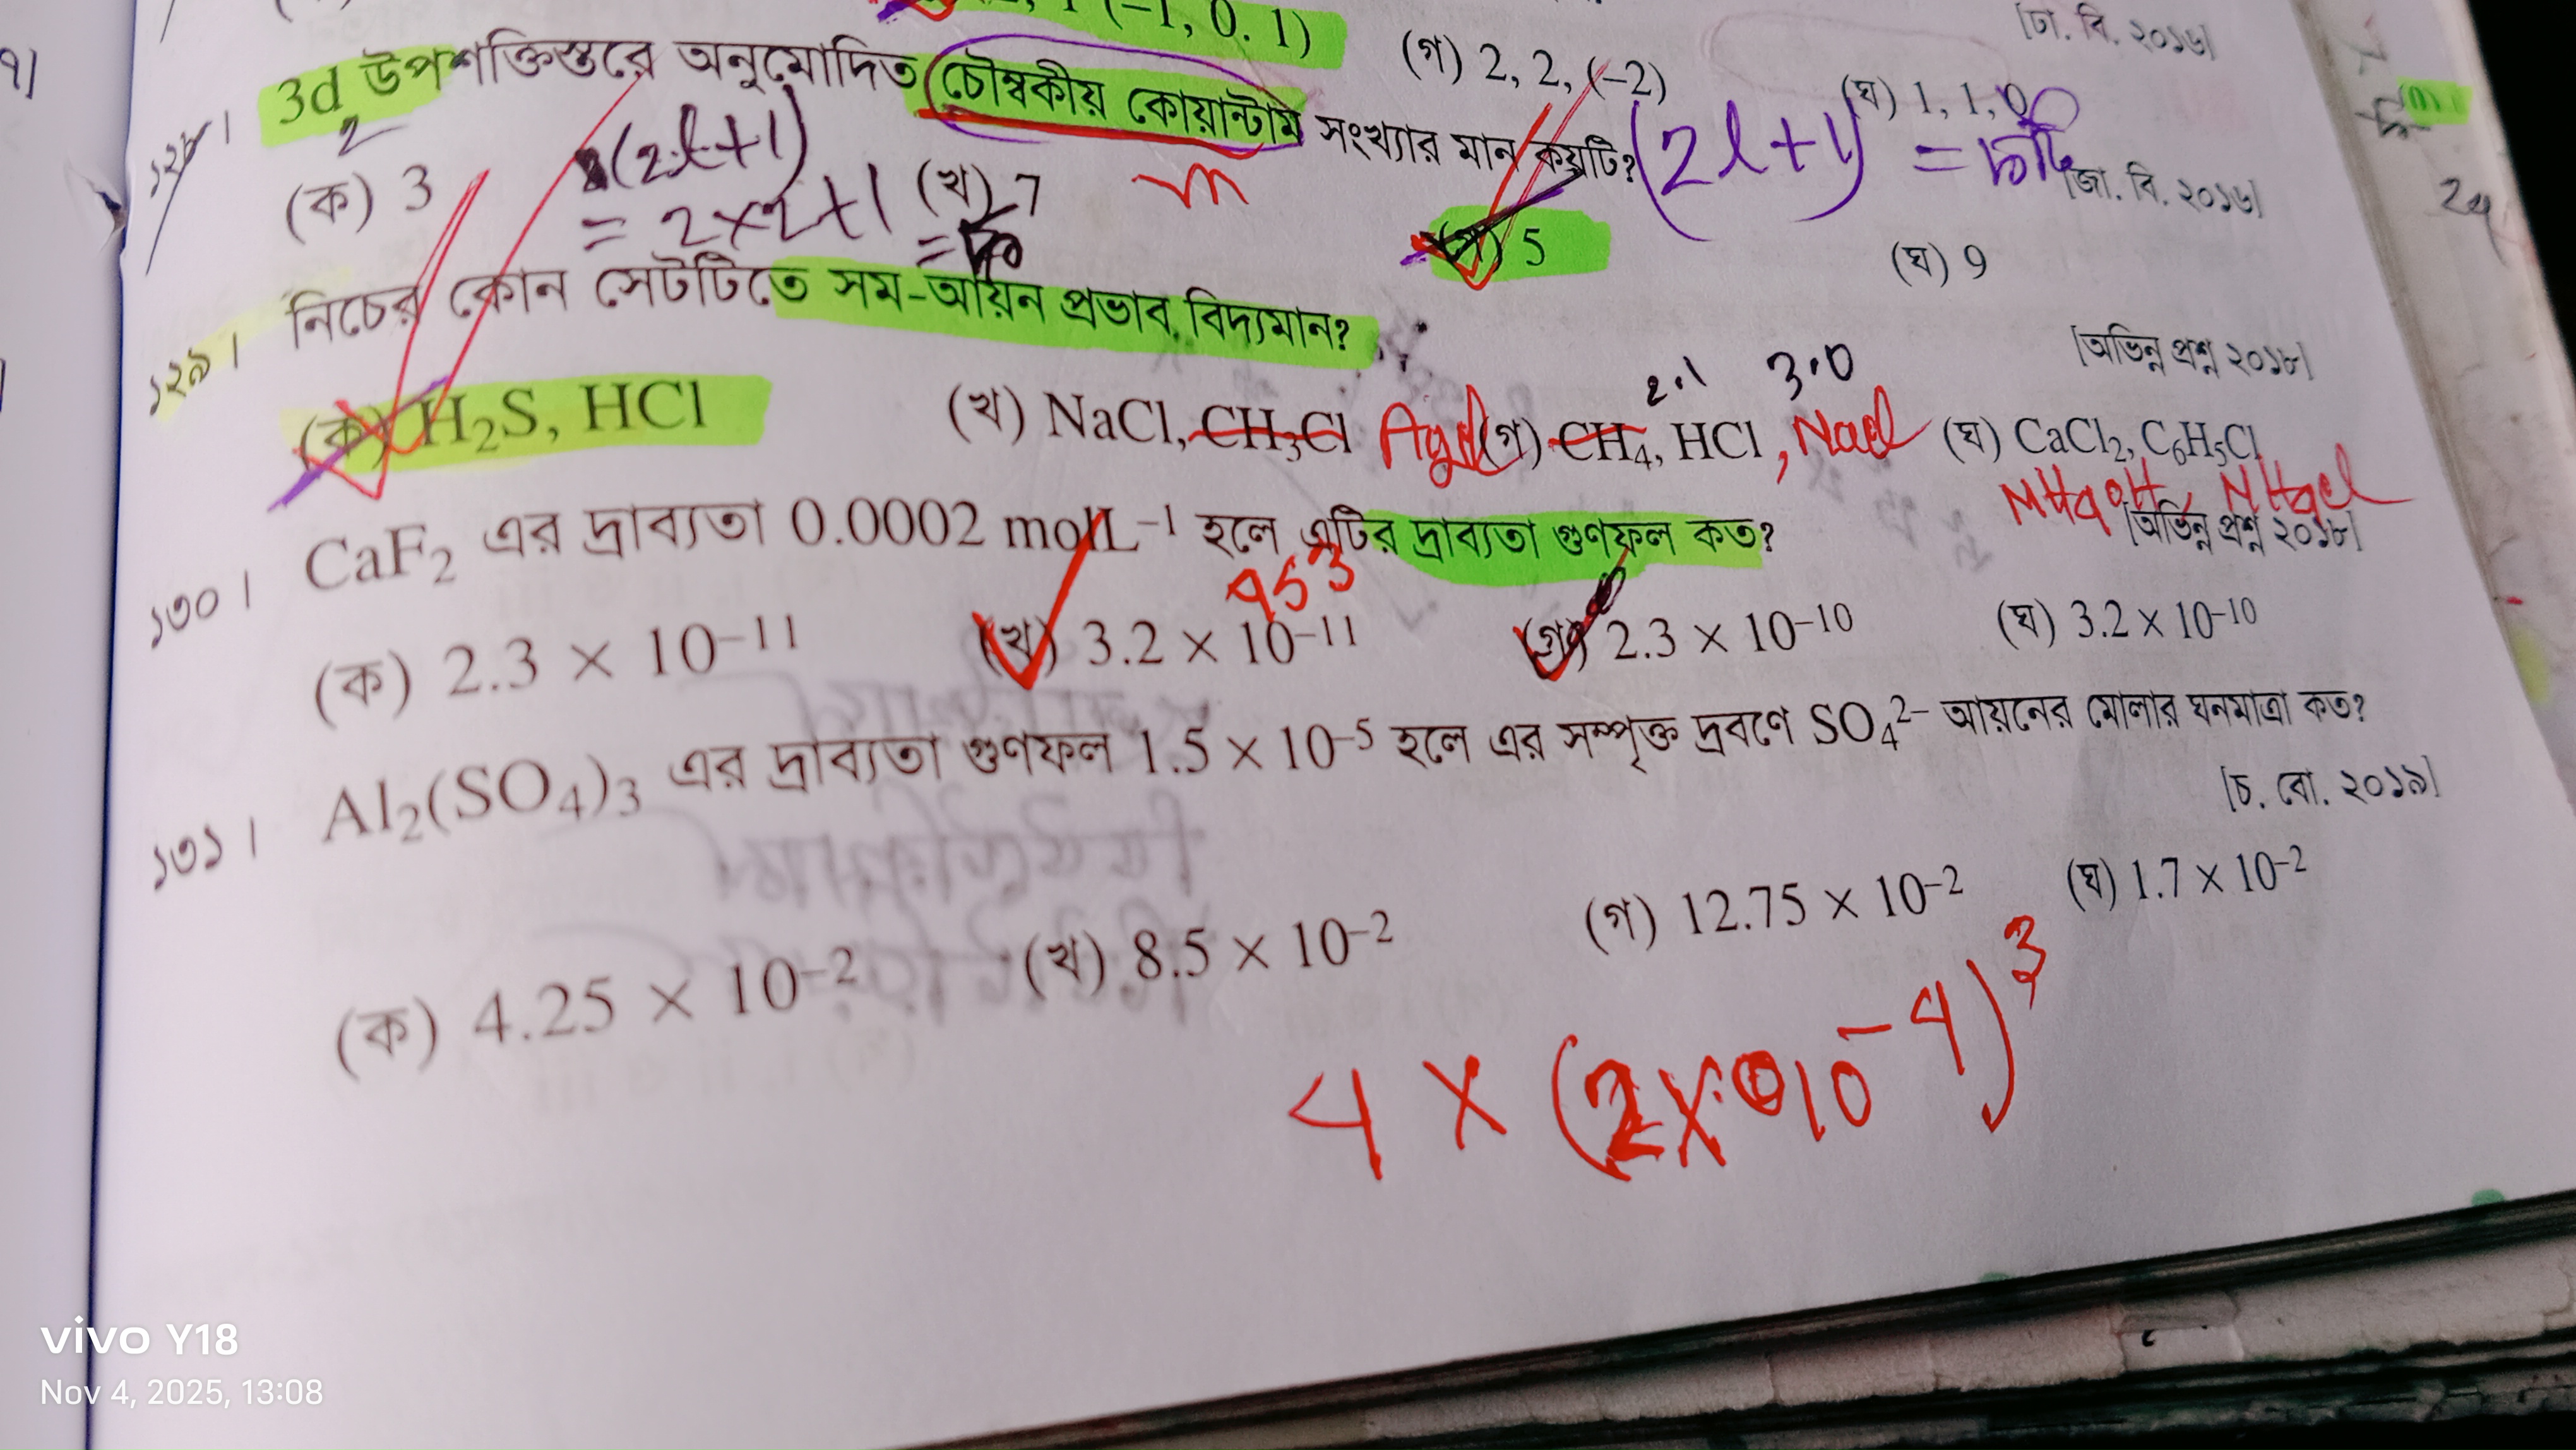 (-1, 0. 1)
(গ) 2, 2, (-2)
(ঘ) 1, 1, 0
[ঢা. বি. ২০১৬]
১২৮। 3d উপশক্তিস্তরে অনুমোদিত চৌম্বকীয় কোয়ান্টাম সংখ্যার মান কয়টি? (2l+1) = ৫টি
2
[জা. বি. ২০১৬]
(ক) 3
(2l+1)
= 2×2+1
(খ) 7
m
(গ) 5
(ঘ) 9
24
১২৯। নিচের কোন সেটটিতে সম-আয়ন প্রভাব বিদ্যমান?
[অভিন্ন প্রশ্ন ২০১৮]
2.1 3.0
(ক) H₂S, HCl
(খ) NaCl, CH₃Cl
(গ) CH₄, HCl, NaCl
(ঘ) CaCl₂, C₆H₅Cl
NH₄OH, NH₄Cl
১৩০। CaF₂ এর দ্রাব্যতা 0.0002 molL⁻¹ হলে এটির দ্রাব্যতা গুণফল কত?
[অভিন্ন প্রশ্ন ২০১৮]
4S³
(ক) 2.3 × 10⁻¹¹
(খ) 3.2 × 10⁻¹¹
(গ) 2.3 × 10⁻¹⁰
(ঘ) 3.2 × 10⁻¹⁰
১৩১। Al₂(SO₄)₃ এর দ্রাব্যতা গুণফল 1.5 × 10⁻⁵ হলে এর সম্পৃক্ত দ্রবণে SO₄²⁻ আয়নের মোলার ঘনমাত্রা কত?
[চ. বো. ২০১৯]
(ক) 4.25 × 10⁻²
(খ) 8.5 × 10⁻²
(গ) 12.75 × 10⁻²
(ঘ) 1.7 × 10⁻²
4 × (2×10⁻⁴)³
vivo Y18
Nov 4, 2025, 13:08